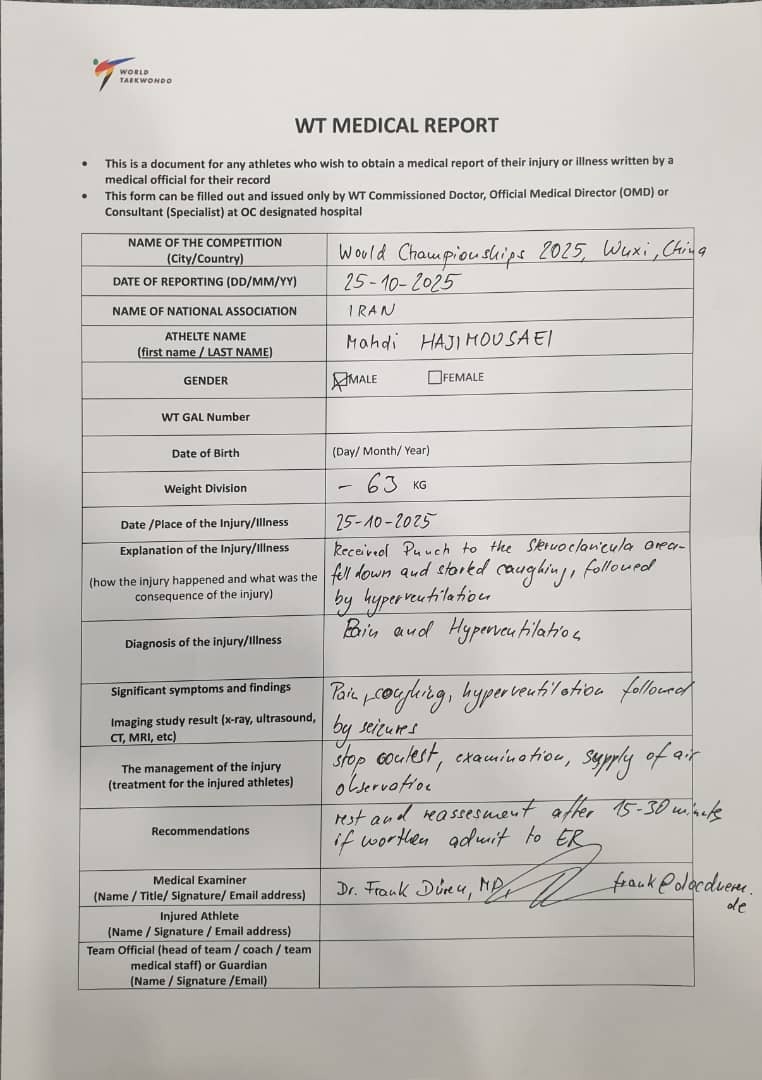 WORLD
TAEKWONDO
WT MEDICAL REPORT
• This is a document for any athletes who wish to obtain a medical report of their injury or illness written by a
medical official for their record
• This form can be filled out and issued only by WT Commissioned Doctor, Official Medical Director (OMD) or
Consultant (Specialist) at OC designated hospital
NAME OF THE COMPETITION
(City/Country)
World Championships 2025, Wuxi, China
DATE OF REPORTING (DD/MM/YY)
25-10-2025
NAME OF NATIONAL ASSOCIATION
IRAN
ATHELTE NAME
(first name / LAST NAME)
Mahdi HAJIMOUSAEI
GENDER
MALE FEMALE
WT GAL Number
Date of Birth
(Day/ Month/ Year)
Weight Division
- 63 KG
Date /Place of the Injury/Illness
25-10-2025
Explanation of the Injury/Illness
(how the injury happened and what was the
consequence of the injury)
Received Punch to the Sternoclavicula area-
fell down and started coughing, followed
by hyperventilation
Diagnosis of the injury/Illness
Pain and Hyperventilation
Significant symptoms and findings
Imaging study result (x-ray, ultrasound,
CT, MRI, etc)
Pain, coughing, hyperventilation followed
by seizures
The management of the injury
(treatment for the injured athletes)
stop contest, examination, supply of air
observation
Recommendations
rest and reassesment after 15-30 minute
if worthen admit to ER
Medical Examiner
(Name / Title/ Signature/ Email address)
Dr. Frank Düren, MD, frank@docdueren.
de
Injured Athlete
(Name / Signature / Email address)
Team Official (head of team / coach / team
medical staff) or Guardian
(Name / Signature /Email)